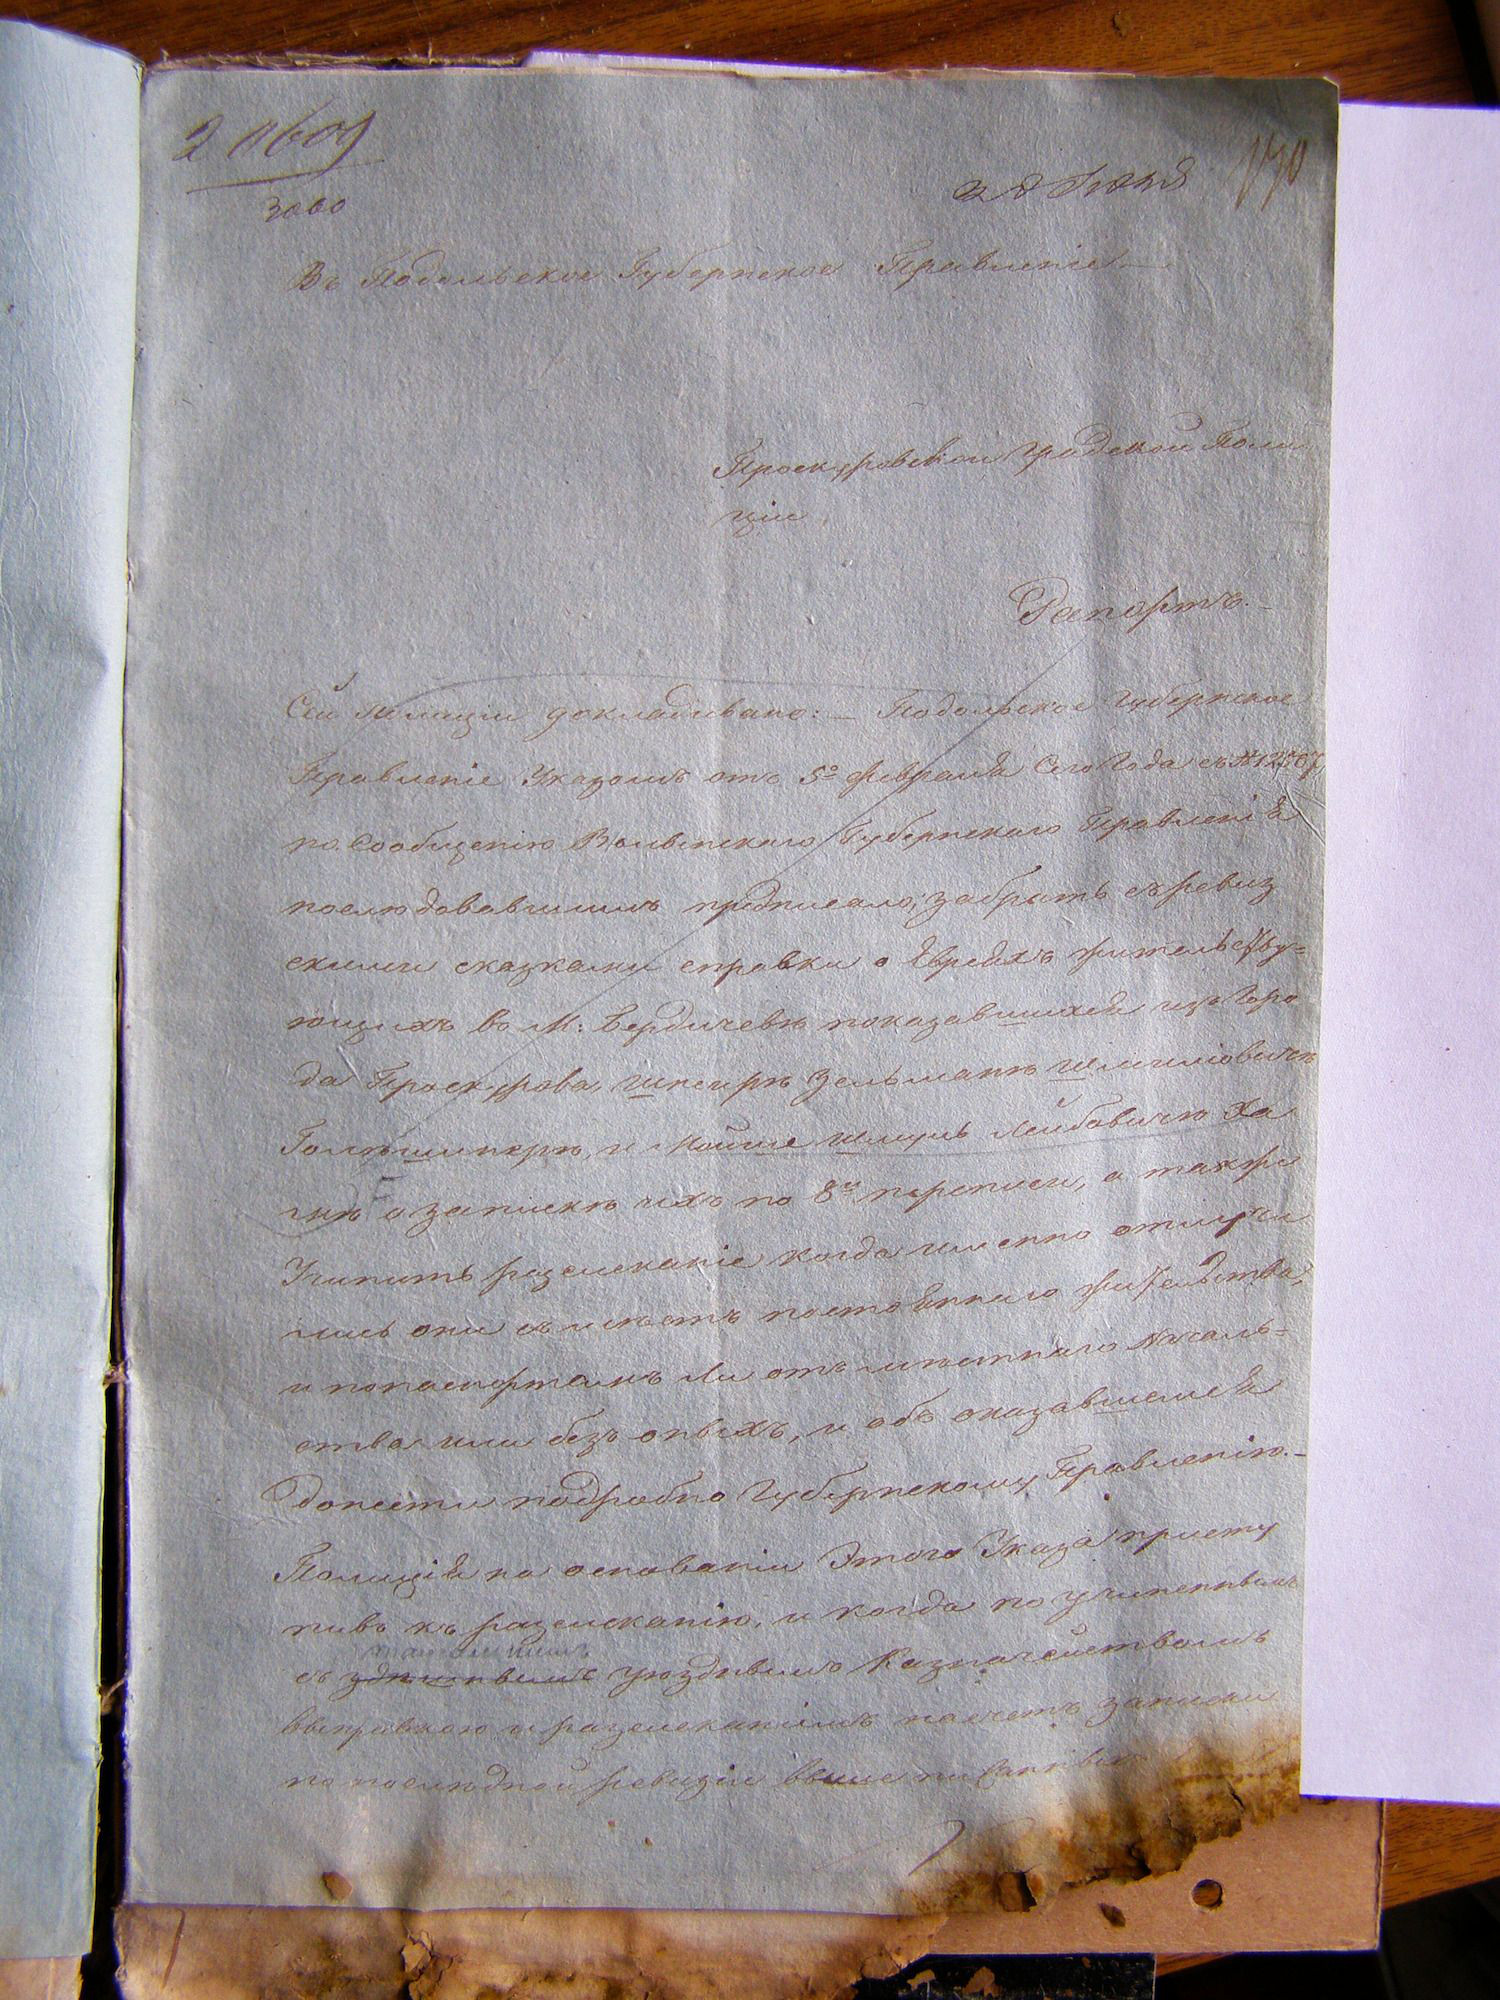 3060
28 Іюля
170
Въ Подольское Губернское Правленіе
Проскуровской Градской Поли
ціи
Рапортъ.
Сей Полиціи докладывано: — Подольское Губернское
Правленіе Указомъ отъ 5го февраля Сего Года съ №
по Сообщенію Волынскаго Губернскаго Правленія
последовавшимъ предписало, забрать съ ревиз
скими сказками справки о Евреяхъ жительству=
ющихъ во М: Бердичевѣ показавшихся изъ Горо
да Проскурова, Зельманѣ Шлиомовичѣ
и Мойше Шлиомѣ Лейбовичѣ Ха
о запискѣ ихъ по 8й переписи, а также
Учинить розысканіе когда именно отлучи
лись они съ мѣстъ постояннаго жительства,
и попаспортамъ ли отъ мѣстнаго Началь=
ства или безъ оныхъ, и объ оказавшемся
донести подробно Губернскому Правленію. —
Полиція на основаніи Этого Указа присту
пивъ къ розысканію, и когда по учиненнымъ
съ уѣзднымъ Казначействомъ
выправкою и розысканіямъ насчетъ записки
по послѣдной ревизіи выше писанныхъ